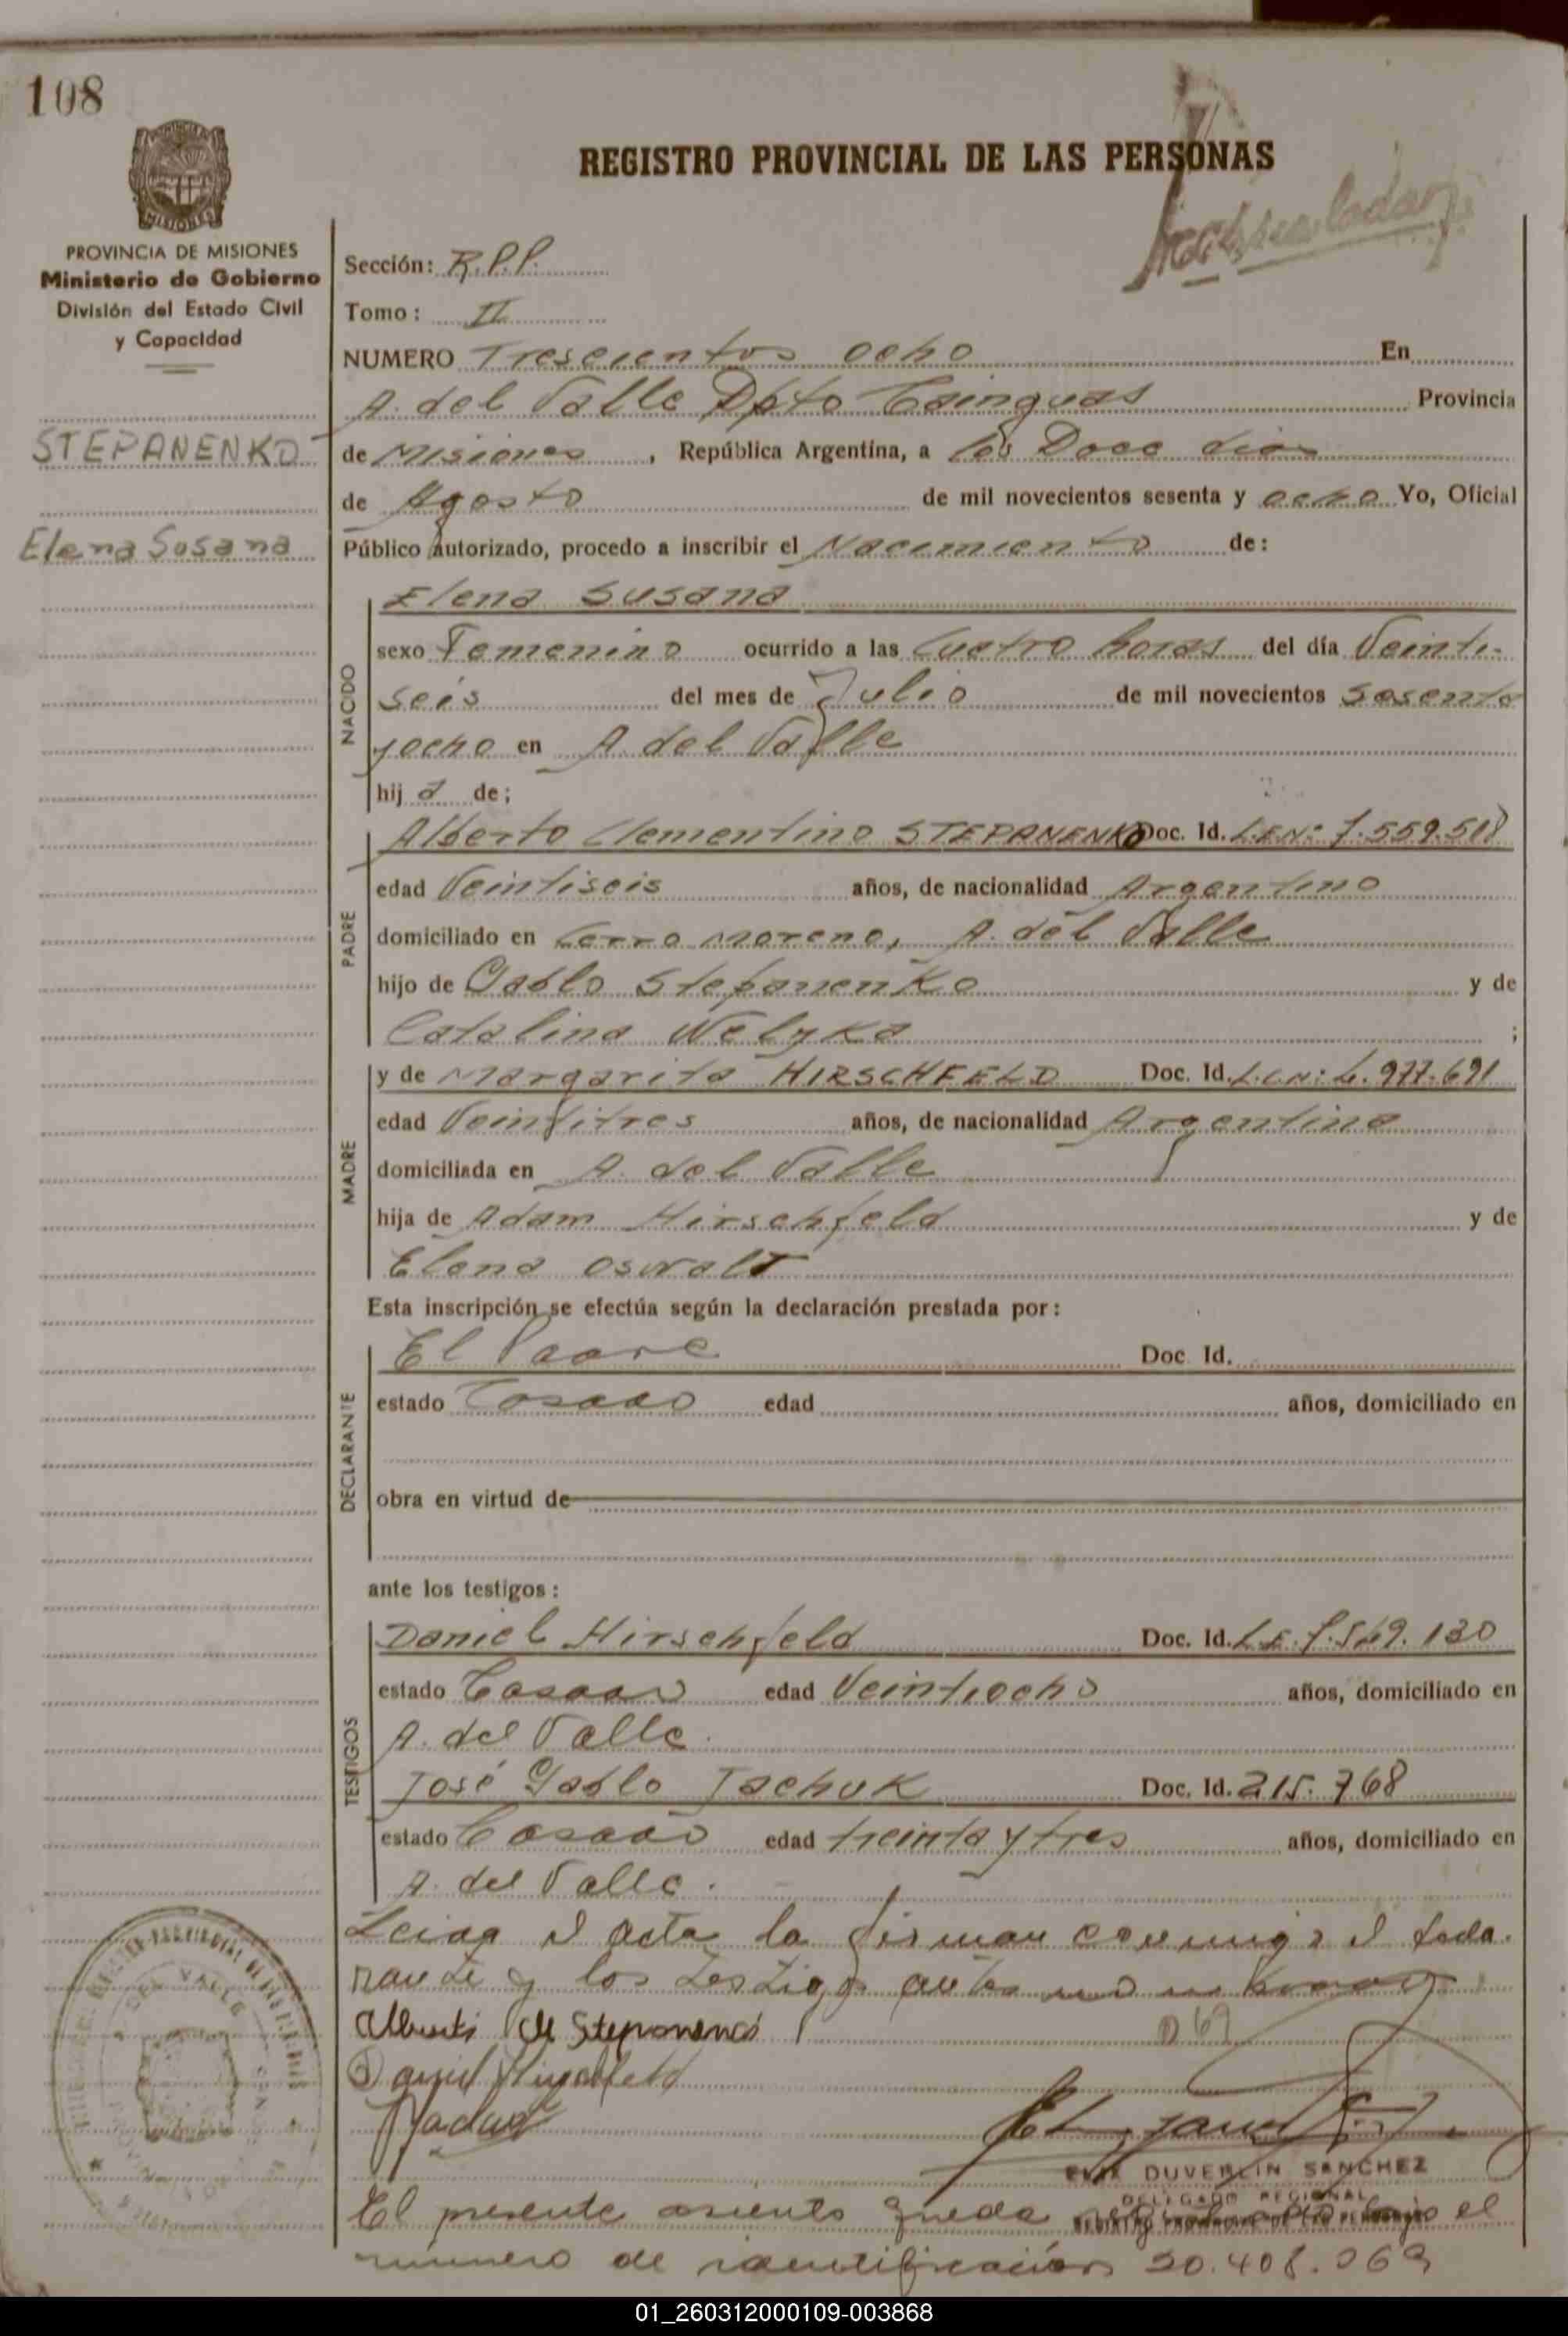 108
REGISTRO PROVINCIAL DE LAS PERSONAS
MISIONES
PROVINCIA DE MISIONES
Ministerio de Gobierno
División del Estado Civil
y Capacidad
STEPANENKO
Elena Susana
Sección: R.P.P.
Tomo: II
NUMERO Trescientos ocho En
A. del Valle Dpto Cainguas Provincia
de Misiones, República Argentina, a los Doce dias
de Agosto de mil novecientos sesenta y ocho Yo, Oficial
Público autorizado, procedo a inscribir el Nacimiento de:
NACIDO
Elena Susana
sexo Femenino ocurrido a las Cuatro horas del día Veinti-
seis del mes de Julio de mil novecientos Sesenta
y ocho en A. del Valle
hij a de;
PADRE
Alberto Clementino STEPANENKO Doc. Id. L.E.Nº 7.559.518
edad Veintiseis años, de nacionalidad Argentino
domiciliado en Cerro Moreno, A. del Valle
hijo de Pablo Stepanenko y de
Catalina Welyka ;
MADRE
y de Margarita HIRSCHFELD Doc. Id. L.C.N: 6.977.691
edad Veintitres años, de nacionalidad Argentina
domiciliada en A. del Valle
hija de Adam Hirschfeld y de
Elena Oswalt
Esta inscripción se efectúa según la declaración prestada por:
DECLARANTE
El Padre Doc. Id.
estado Casado edad años, domiciliado en
obra en virtud de
ante los testigos:
TESTIGOS
Daniel Hirschfeld Doc. Id. L.E. 7.549.130
estado Casado edad Veintiocho años, domiciliado en
A. del Valle.
José Pablo Tachuk Doc. Id. 215.768
estado Casado edad treinta y tres años, domiciliado en
A. del Valle.
Leida el acta la firman conmigo el decla-
rante y los testigos
Daniel Hirschfeld
DUVERLIN SANCHEZ
DELEGADO REGIONAL
REGISTRO PROVINCIAL DE LAS PERSONAS
El presente asiento queda bajo el
número de identificación 20.408.069
01_260312000109-003868